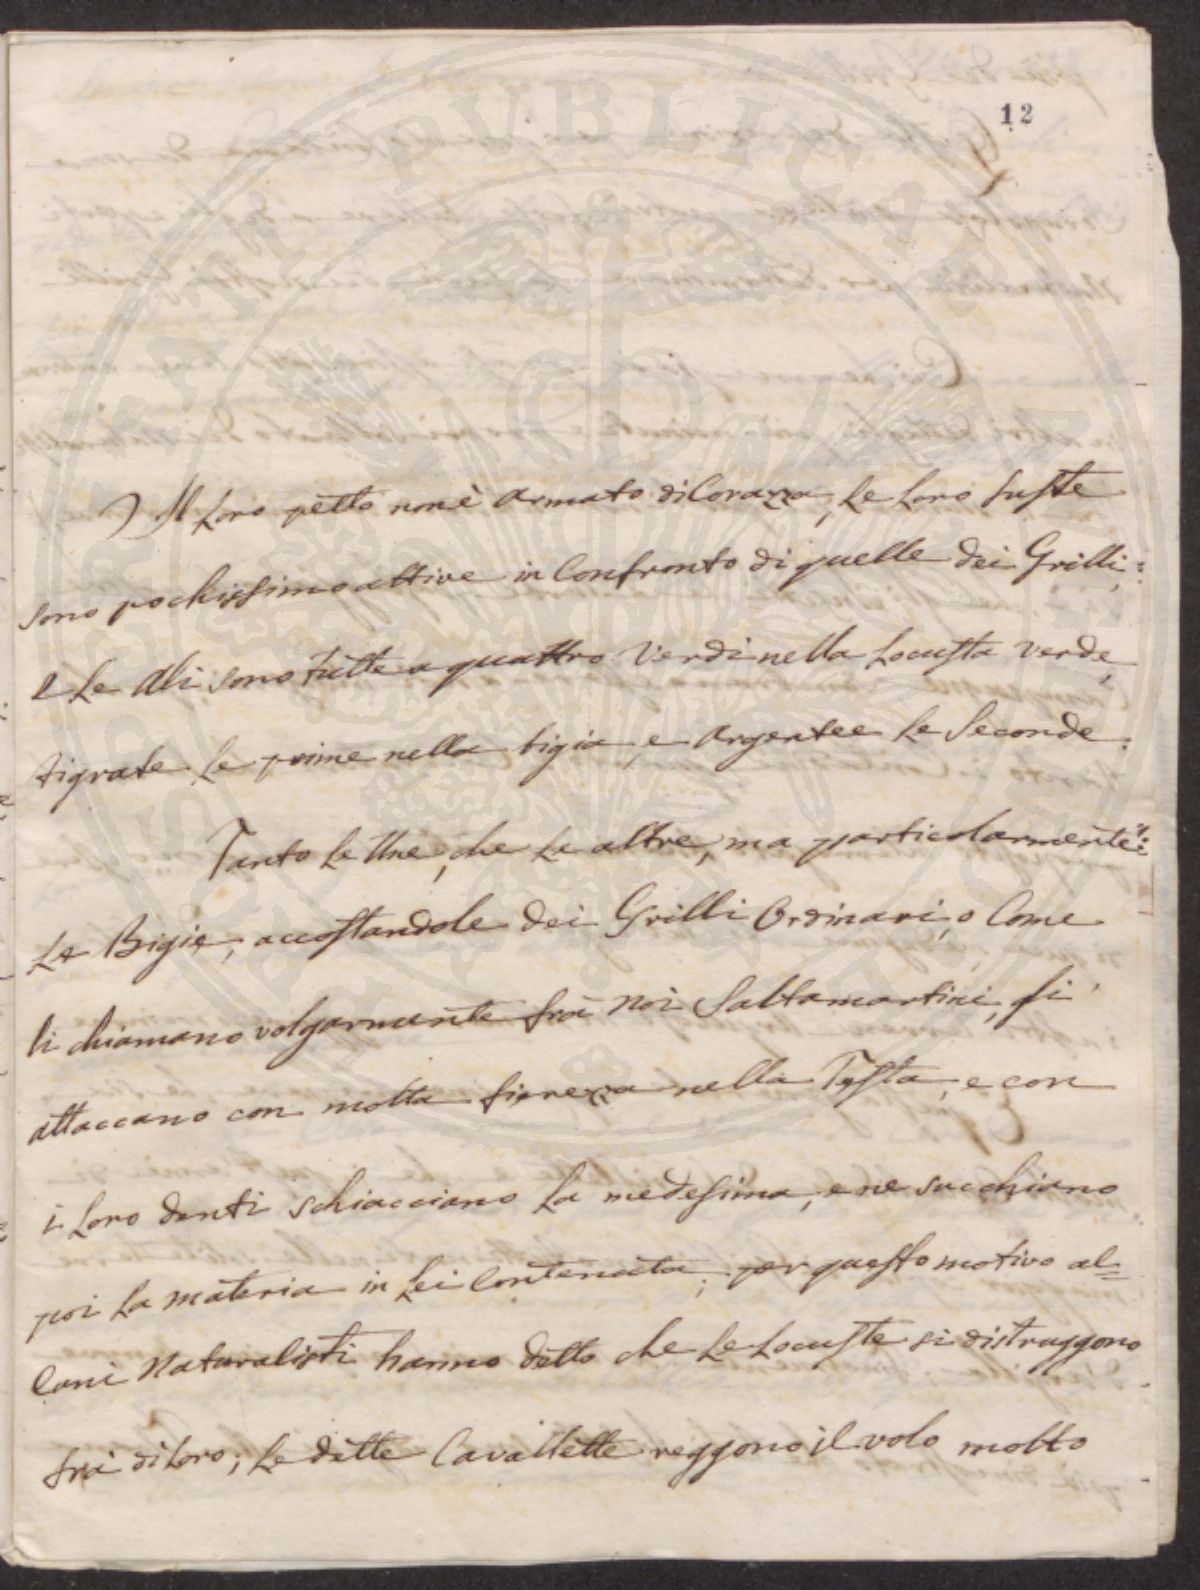 12
) Il Loro petto non è armato di Corazza, Le Loro Suste
sono pochissimo attive in Confronto di quelle dei Grilli,:
e Le Ali, sono tutte a quattro Verdi nella Locusta verde,
tigrate Le prime nella bigia, e argentee Le Seconde.
Tanto Le Une, che Le altre, ma particolarmente:
Le Bigie, accostandole dei Grilli Ordinari, o Come
li chiamano volgarmente frà noi Saltamartini, si
attaccano con molta fierezza nella Testa, e con
i Loro denti schiacciano La medesima, e ne succhiano
poi La materia in Lei Contenuta; per questo motivo al=
Cuni Naturalisti hanno detto che Le Locuste si distruggono
frà di Loro; Le dette Cavallette reggono il volo molto